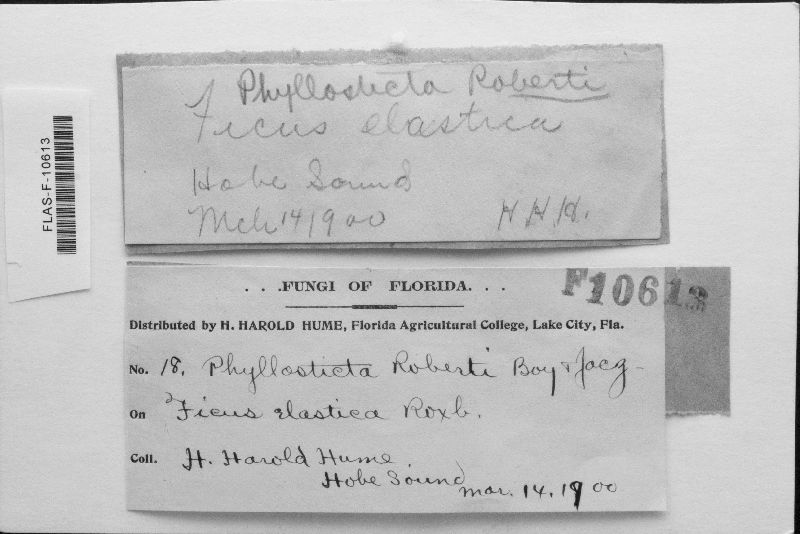 FLAS-F-10613
Phyllosticta Roberti
Ficus elastica
Hobe Sound
Mch 14 1900
H. H. H.
. . .FUNGI OF FLORIDA. . .
F10613
Distributed by H. HAROLD HUME, Florida Agricultural College, Lake City, Fla.
No. 18. Phyllosticta Roberti Boy & Jacq
On Ficus elastica Roxb.
Coll. H. Harold Hume
Hobe Sound Mar. 14. 1900